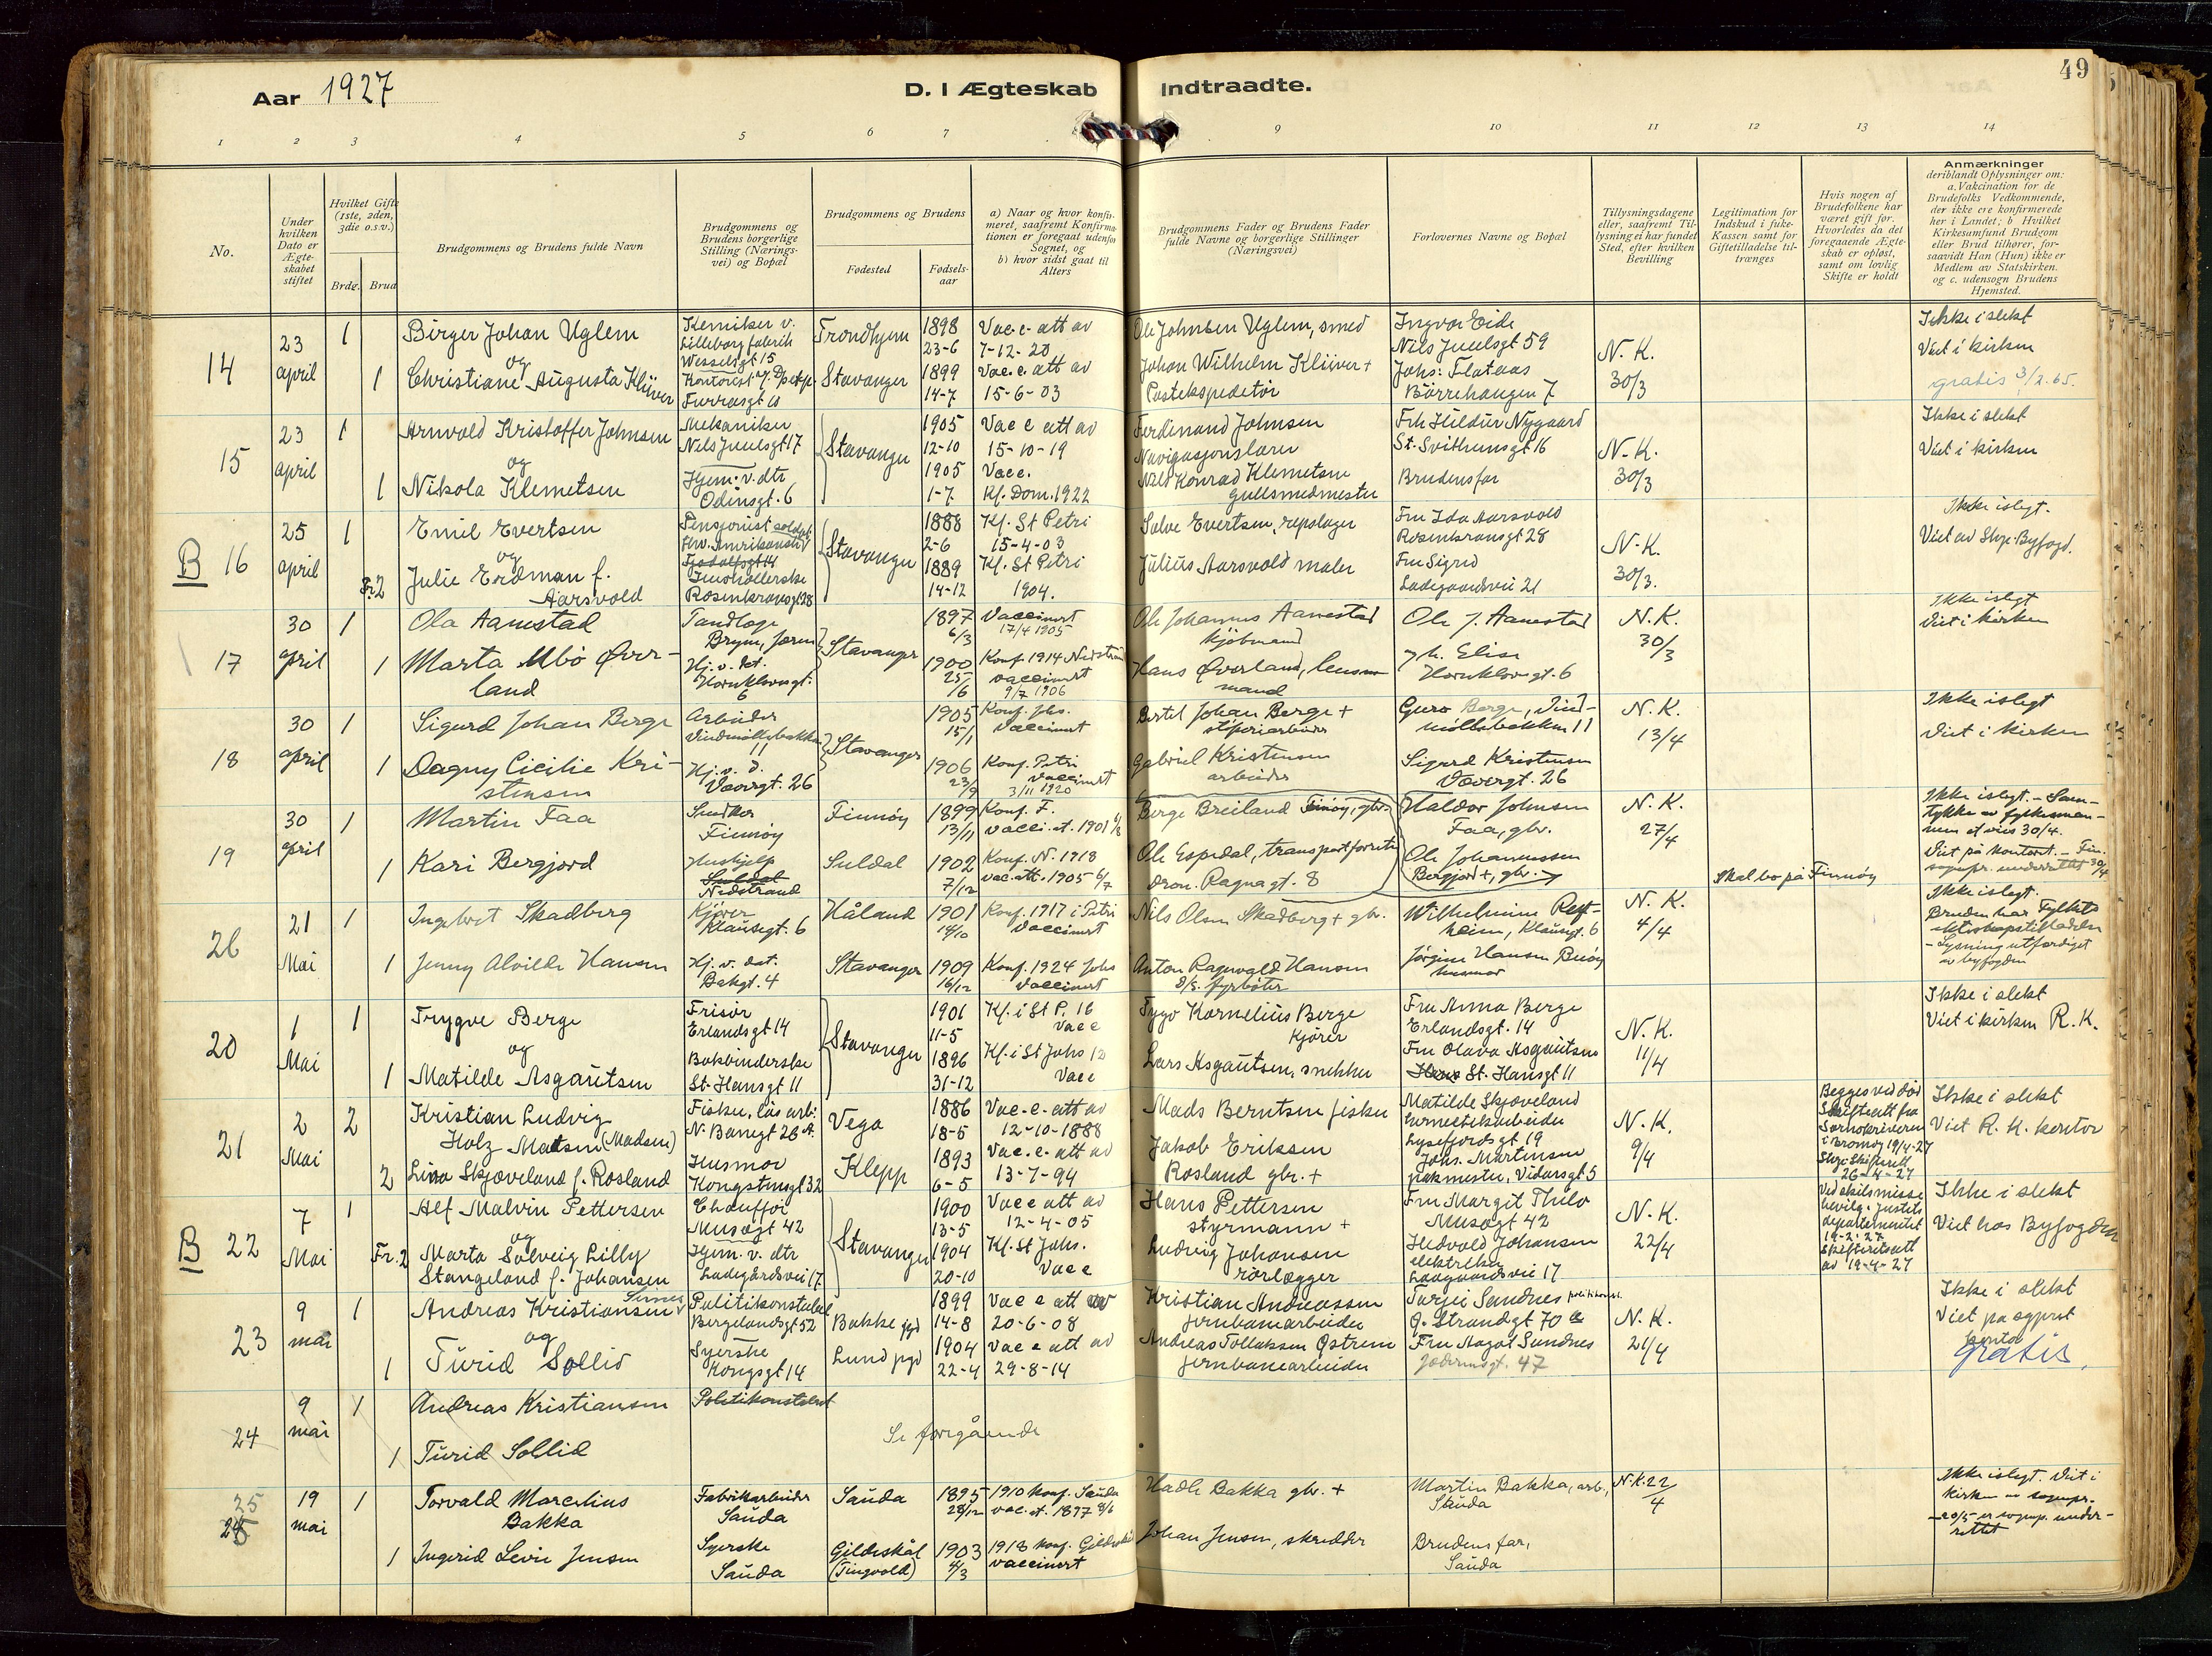 49
Aar 1927
D. I Ægteskab Indtraadte.
1 2 3 4 5 6 7 8 9 10 11 12 13 14
No.
Under hvilken Dato er Ægteskabet stiftet
Hvilket Gifte (1ste, 2den, 3die o.s.v.)
Brdg. Brud
Brudgommens og Brudens fulde Navn
Brudgommens og Brudens borgerlige Stilling (Næringsvei) og Bopæl
Brudgommens og Brudens
Fødested
Fødselsaar
a) Naar og hvor konfirmeret, saafremt Konfirmationen er foregaat udenfor Sognet, og b) hvor sidst gaat til Alters
Brudgommens Fader og Brudens Fader fulde Navne og borgerlige Stillinger (Næringsvei)
Forlovernes Navne og Bopæl
Tillysningsdagene eller, saafremt Tillysning ei har fundet Sted, efter hvilken Bevilling
Legitimation for Indskud i fuke-Kassen samt for Giftetilladelse tiltrænges
Hvis nogen af Brudefolkene har været gift før. Hvorledes da det foregaaende Ægteskab er opløst, samt om lovlig Skifte er holdt
Anmærkninger
deriblandt Oplysninger om: a. Vakcination for de Brudefolks Vedkommende, der ikke ere konfirmerede her i Landet; b Hvilket Kirkesamfund Brudgom eller Brud tilhører, forsaavidt Han (Hun) ikke er Medlem av Statskirken. og c. udensogn Brudens Hjemsted.
14
23 april
1
Birger Johan Uglem
og
1
Christiane Augusta Klüver
Kemiker v. Lilleborg fabrik
Wesselsgt 15
Trondhjem
Stavanger
1898
23-6
1899
14-7
Vac. e. att av
7-12-20
Vac. e. att av
15-6-03
Ole Johnsen Uglem, smed
Johan Wilhelm Klüver +
Postekspeditør
Ingvar Eide
Nils Juelsgt 59
Johs: Flataas
Børrehaugen 7
N. K.
30/3
Ikke i slekt
Viet i kirken
gratis 3/2.65.
15
23 april
1
Arnvold Kristoffer Johnsen
og
1
Nikola Klemetsen
Mekaniker
Nils Juelsgt 17
Hjem. v. dtr
Odinsgt. 6
Stavanger
1905
12-10
1905
1-7
Vac e att av
15-10-19
Vacc.
Kf. Dom. 1922
Ferdinand Johnsen
Navigasjonslærer
Nils Konrad Klemetsen
gullsmedmester
Frk Hildur Nygaard
St. Svithunsgt 16
Brudens far
N. K.
30/3
Ikke i slekt
Viet i kirken
B 16
25 april
1
Emil Evertsen
og
Fr. 2
Julie Erdman f.
Aarsvold
Pensjonist soldat
Rosenkransgt 28
Stavanger
1888
2-6
1889
14-12
Kf. St Petri
15-4-03
Kf. St Petri
1904.
Salve Evertsen, repslager
Julius Aarsvold maler
Fru Ida Aarsvold
Rosenkransgt 28
Fru Sigrid
Ladegaardsvei 21
N. K.
30/3.
Ikke i slegt.
Viet av Stvgr. Byfogd.
17
30 april
1
Ola Aanestad
1
Marta Mbø Øverland
Tandlæge
Bryne, Jæren
Hj. v. dat.
Hornklovesgt. 6
Stavanger
1897
6/3
1900
25/6
Vaccinert
17/4 1905
Konf. 1914 Nedstrand
vaccinert
9/7 1906
Ole Johannes Aanestad
kjøbmand
Hans Øverland, lensmand
Ole J. Aanestad
Hornklovsgt. 6
N. K.
30/3
Ikke i slegt
Viet i kirken
18
30 april
1
Sigurd Johan Berge
1
Dagny Cicilie Kristensen
Arbeider
Vindmøllebakken 11
Hj. v. d.
Vævergt. 26
Stavanger
1905
15/1
1906
23/9
Konf. Johs.
Vaccinert
Konf. Petri
vaccinert
3/11 1920
Bertel Johan Berge +
støperiarbeider
Gabriel Kristensen
arbeider
Guro Berge, Vindmøllebakken 11
Sigurd Kristensen
Vævergt. 26
N. K.
13/4
Ikke i slegt
Viet i kirken
19
30 april
1
Martin Faa
1
Kari Bergjord
Snedker
Finnøy
Hushjelp
Suldal
Nedstrand
Finnøy
Suldal
1899
13/11
1902
7/12
Konf. F.
vacci. at. 1901
Konf. N. 1918
vac. att. 1905 6/7
Berge Breiland Finnøy, gbr.
Ole Espedal, transportforretn.
dron. Ragnagt. 8
Haldor Johnsen
Faa, gbr.
Ole Johannessen
Bergjord +, gbr.
N. K.
27/4
Skal bo på Finnøy
Ikke i slegt. – Samtykke av fylkesmannen at vies 30/4.
Viet på kontoret. –
26
21 Mai
1
Ingebret Skadberg
1
Jenny Alvilde Hansen
Kjører
Klausegt. 6
Hj. v. dat.
Bakgt. 4
Håland
Stavanger
1901
18/10
1909
16/12
Konf. 1917 i Petri
Vaccinert
Konf. 1924 Johs
Vaccinert
Nils Olsen Skadberg + gbr.
Anton Ragnvald Hansen
d/s. fyrbøter
Wilhelmine Restheim, Klausgt. 6
Jørgine Hansen Buøy
husmor
N. K.
4/4
Ikke i slegt.
Bruden har Fylkets ekteskapstilladelse
– Lysning utfærdiget av byfogden
20
1 Mai
1
Trygve Berge
og
1
Matilde Asgautsen
Frisør
Erlandsgt 14
Bokbinderske
St. Hansgt 11
Stavanger
1901
11-5
1896
31-12
Kf. i St P. 16
Vacc
Kf. i St Johs 12
Vacc
Tygo Kornelius Berge
Kjører
Lars Asgautsen, snekker
Fru Anna Berge
Erlandsgt. 14
Fru Olava Asgautsen
St. Hansgt 11
N. K.
11/4
Ikke i slekt
Viet i kirken R. K.
21
2 Mai
2
Kristian Ludvig
Holz Matsen (Madsen)
2
Lina Skjæveland f. Rosland
Fisker, løs arb.
N. Banegt 26 A.
Husmor
Kongstensgt 32
Vega
Klepp
1886
18-5
1893
6-5
Vac. e. att av
12-10-1888
Vac. e. att av
13-7-94
Mads Berntsen fisker
Jakob Eriksen
Rosland gbr. +
Matilde Skjæveland
hermetikarbeider
Lysefjordsgt 19
Johs. Martinsen
pakmester, Vidarsgt 5
N. K.
9/4
Begges ved død
Skifteatt fra Sorenskriveren i Brønnøy 19/4-27
Stvgr Skifterett
26-4-27
Ikke i slekt
Viet R. K. kontor
B 22
7 Mai
1
Alf Malvin Pettersen
og
Fr. 2
Marta Solveig Lilly
Stangeland f. Johansen
Chauffør
Musegt 42
Hjem. v. dtr
Ladegårdsvei 17
Stavanger
1900
13-5
1904
20-10
Vacc att av
12-4-05
Kf. St Johs.
Vacc
Hans Pettersen
styrmann +
Ludvig Johansen
rørlægger
Fru Margit Thilo
Musegt 42
Hedvold Johansen
elektriker
Laagaardsvei 17
N. K.
22/4
Ved skilsmisse bevilg. Justits departementet
19-2-27
Skifterettsatt av 19-4-27
Ikke i slekt
Viet hos Byfogden
23
9 mai
1
Andreas Kristiansen
og
1
Turid Sollid
Politikonstabel
Bergelandsgt 52
Syerske
Kongsgt 14
Bakke pgd
Lund pgd
1899
14-8
1904
22-4
Vac e att av
20-6-08
Vac e att av
29-8-14
Kristian Andreassen
jernbanearbeider
Andreas Tollaksen Østrem
jernbanearbeider
Torjei Sandnes politikonst.
Ø. Strandgt 70
Fru Magot Sandnes
Jæderensgt. 47
N. K.
21/4
Ikke i slekt
Viet pa sogneprest kontor
Gratis.
24
9 mai
1
Andreas Kristiansen
1
Turid Sollid
Politikonstabel
Se foregående
25
19 mai
1
Torvald Marcelius
Bakka
1
Ingerid Levie Jensen
Fabrikarbeider
Sauda
Syerske
Sauda
Sauda
Gildeskål
(Tingvold)
1895
28/12
1903
4/3
1910 konf. Sauda
vac. at. 1897 8/6
1918 konf. Gildeskål
vaccinert
Hadle Bakka gbr. +
Johan Jensen, skredder
Martin Bakka, arb.,
Sauda
Brudens far,
Sauda
N. K. 22/4
Ikke i slegt. Viet i kirken av sognepr.
– 20/5 er sognep. underrettet